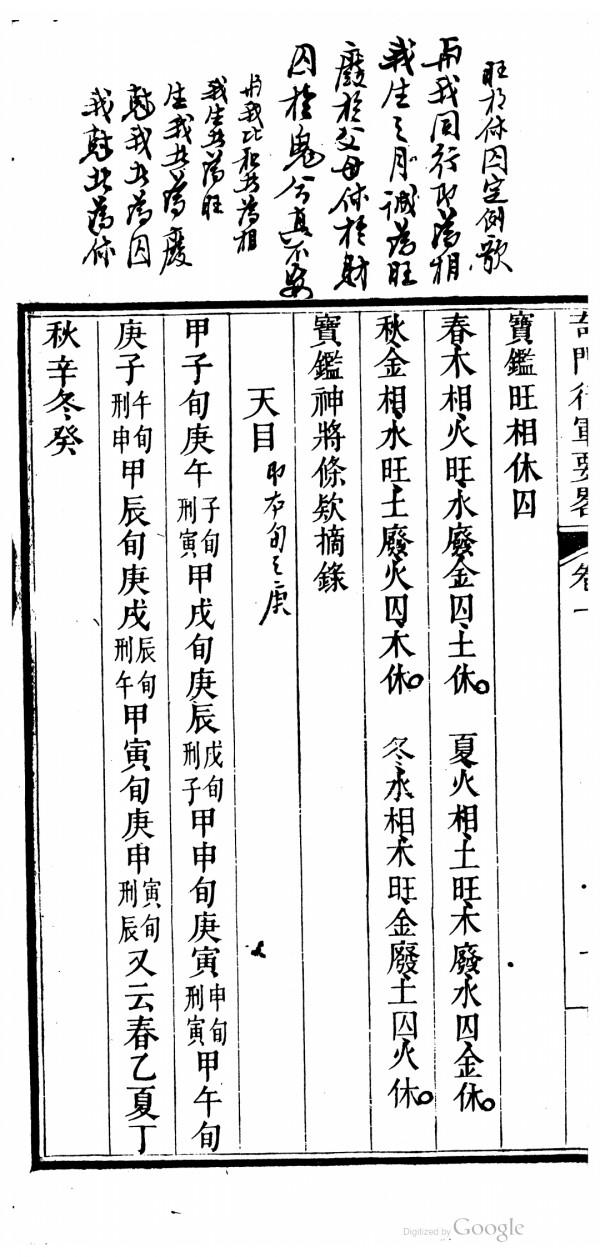 旺相休囚定例歌
與我同行即為相
我生之月誠為旺
廢於父母休於財
囚於鬼兮真不妄
與我比和者為相
我生者為旺
生我者為廢
尅我者為囚
我尅者為休
奇門行軍要畧 卷一 一
寶鑑旺相休囚
春木相火旺水廢金囚土休。 夏火相土旺木廢水囚金休。
秋金相水旺土廢火囚木休。 冬水相木旺金廢土囚火休。
寶鑑神將條欵摘錄
天目 即本旬之庚
甲子旬庚午子旬刑寅甲戌旬庚辰戌旬刑子甲申旬庚寅申旬刑寅甲午旬
庚子午旬刑申甲辰旬庚戌辰旬刑午甲寅旬庚申寅旬刑辰又云春乙夏丁
秋辛冬癸
Digitized by Google